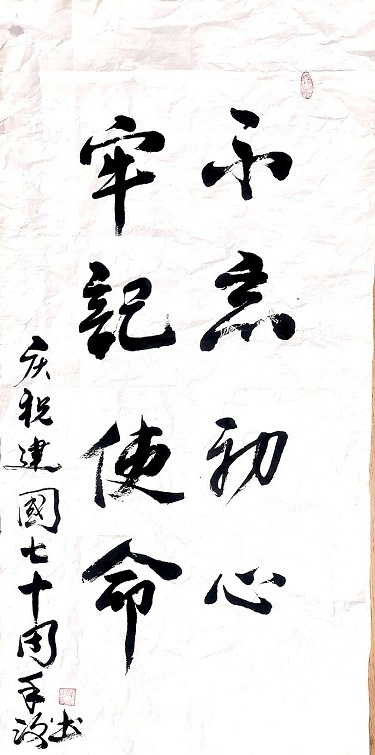 不忘初心
牢記使命
庆祝建國七十周年
书